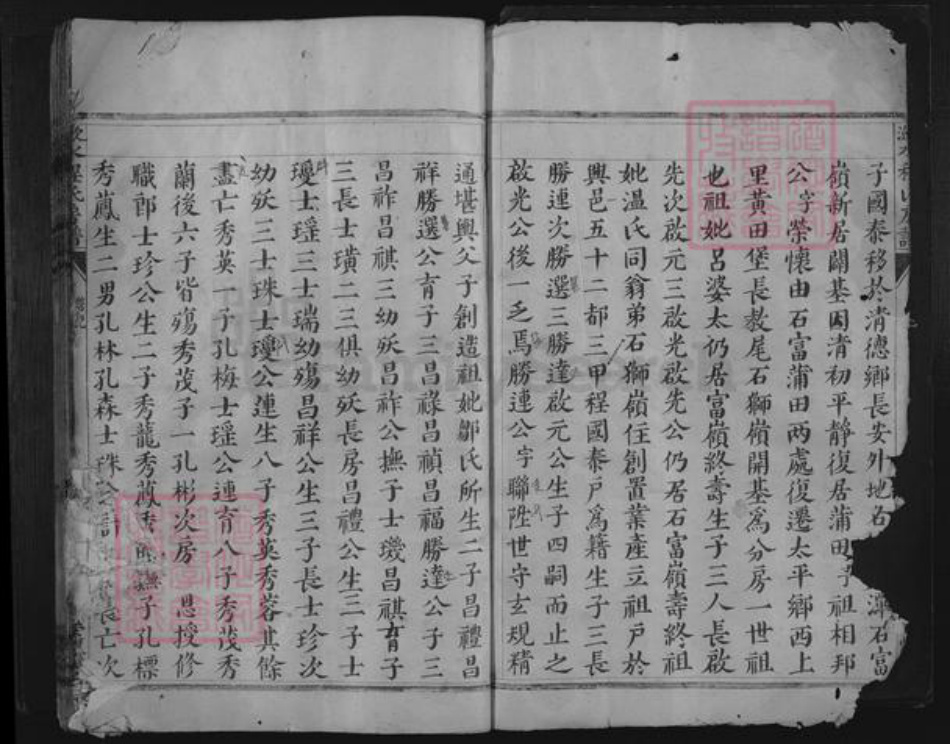 子國泰移於清德鄉長安外地名 潭石富
嶺新居闢基因清初平靜復居蒲田 祖相邦
公字榮懷由石富蒲田兩處復遷太平鄉西上
里黃田堡長教尾石獅嶺開基爲分房一世祖
也祖妣呂婆太仍居富嶺終壽生子三人長啟
先次啟元三啟光啟先公仍居石富嶺壽終祖
妣温氏同翁弟石獅嶺住創置業產立祖户於
興邑五十二都三甲程國泰户爲籍生子三長
勝連次勝選三勝達啟元公生子四嗣而止之
啟光公後一乏焉勝連公字聯陞世守玄規精
通堪輿父子創造祖妣鄒氏所生二子昌禮昌
祥勝選公育子三昌祿昌禎昌福勝達公子三
昌祚昌祺三幼殀昌祚公撫子士璣昌祺育子
三長士璜二三俱幼殀長房昌禮公生三子士
瓊士瑶三士瑞幼殤昌祥公生三子長士珍次
幼殀三士珠士瓊公連生八子秀英秀蓉其餘
盡亡秀英一子孔梅士瑶公連育八子秀茂秀
蘭後六子皆殤秀茂子一孔彬次房 恩授修
職郎士珍公生二子秀龍秀鳳秀 撫子孔標
秀鳳生二男孔林孔森士珠公 長亡次